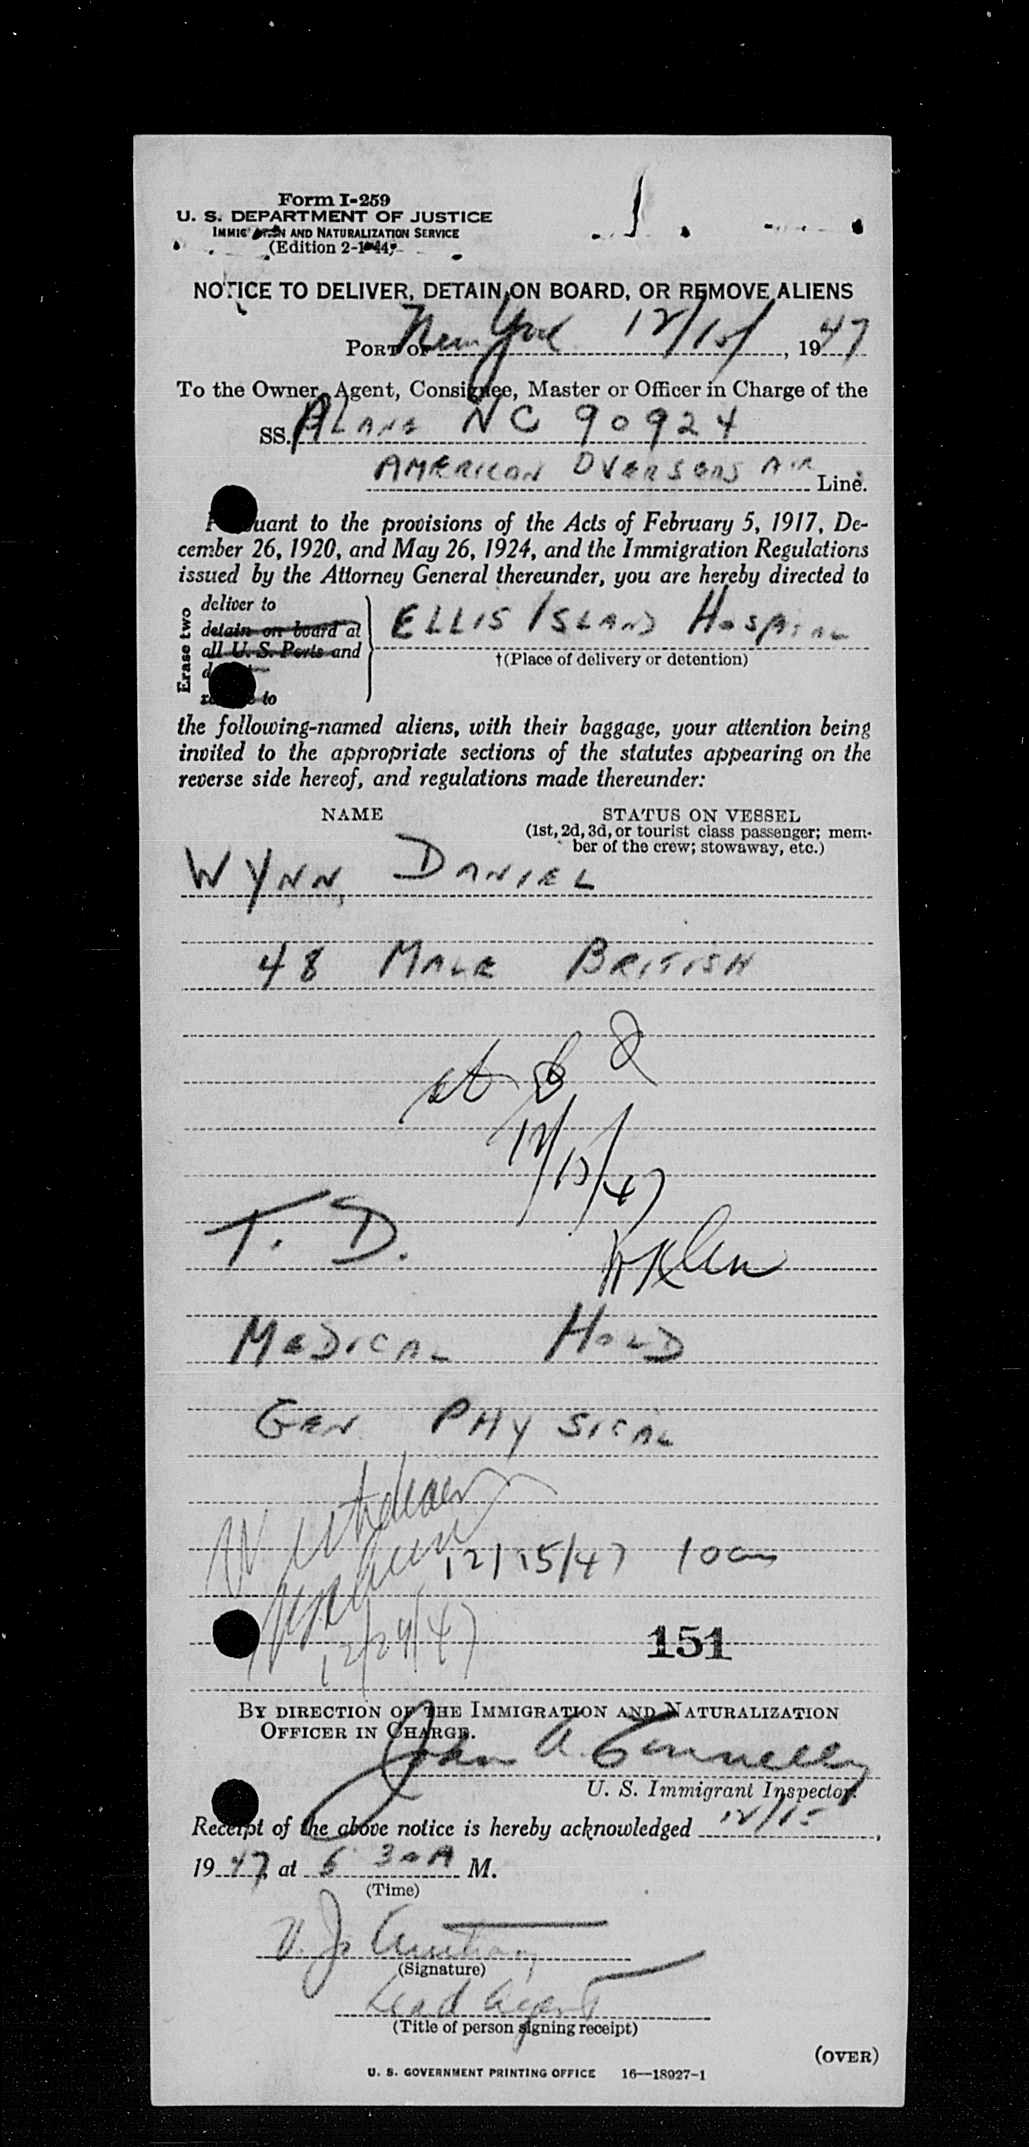 Form I-259
U. S. DEPARTMENT OF JUSTICE
IMMIGRATION AND NATURALIZATION SERVICE
(Edition 2-1-44)
NOTICE TO DELIVER, DETAIN ON BOARD, OR REMOVE ALIENS
PORT OF New York 12/15/, 1947
To the Owner, Agent, Consignee, Master or Officer in Charge of the
SS. NC 90924
AMERICAN OVERSEAS AIR Line.
Pursuant to the provisions of the Acts of February 5, 1917, De-
cember 26, 1920, and May 26, 1924, and the Immigration Regulations
issued by the Attorney General thereunder, you are hereby directed to
Erase two
deliver to
detain on board at
all U. S. Ports and
to
ELLIS ISLAND HOSPITAL
†(Place of delivery or detention)
the following-named aliens, with their baggage, your attention being
invited to the appropriate sections of the statutes appearing on the
reverse side hereof, and regulations made thereunder:
NAME STATUS ON VESSEL
(1st, 2d, 3d, or tourist class passenger; mem-
ber of the crew; stowaway, etc.)
WYNN, DANIEL
48 MALE BRITISH
12/15/47
T. D.
MEDICAL HOLD
GEN PHYSICAL
12/15/47 10am
12/29/47
151
BY DIRECTION OF THE IMMIGRATION AND NATURALIZATION
OFFICER IN CHARGE.
John A. Connelly
U. S. Immigrant Inspector.
Receipt of the above notice is hereby acknowledged 12/15,
1947, at 6 30A M.
(Time)
(Signature)
Lead Agent
(Title of person signing receipt)
(OVER)
U. S. GOVERNMENT PRINTING OFFICE 16—18927-1